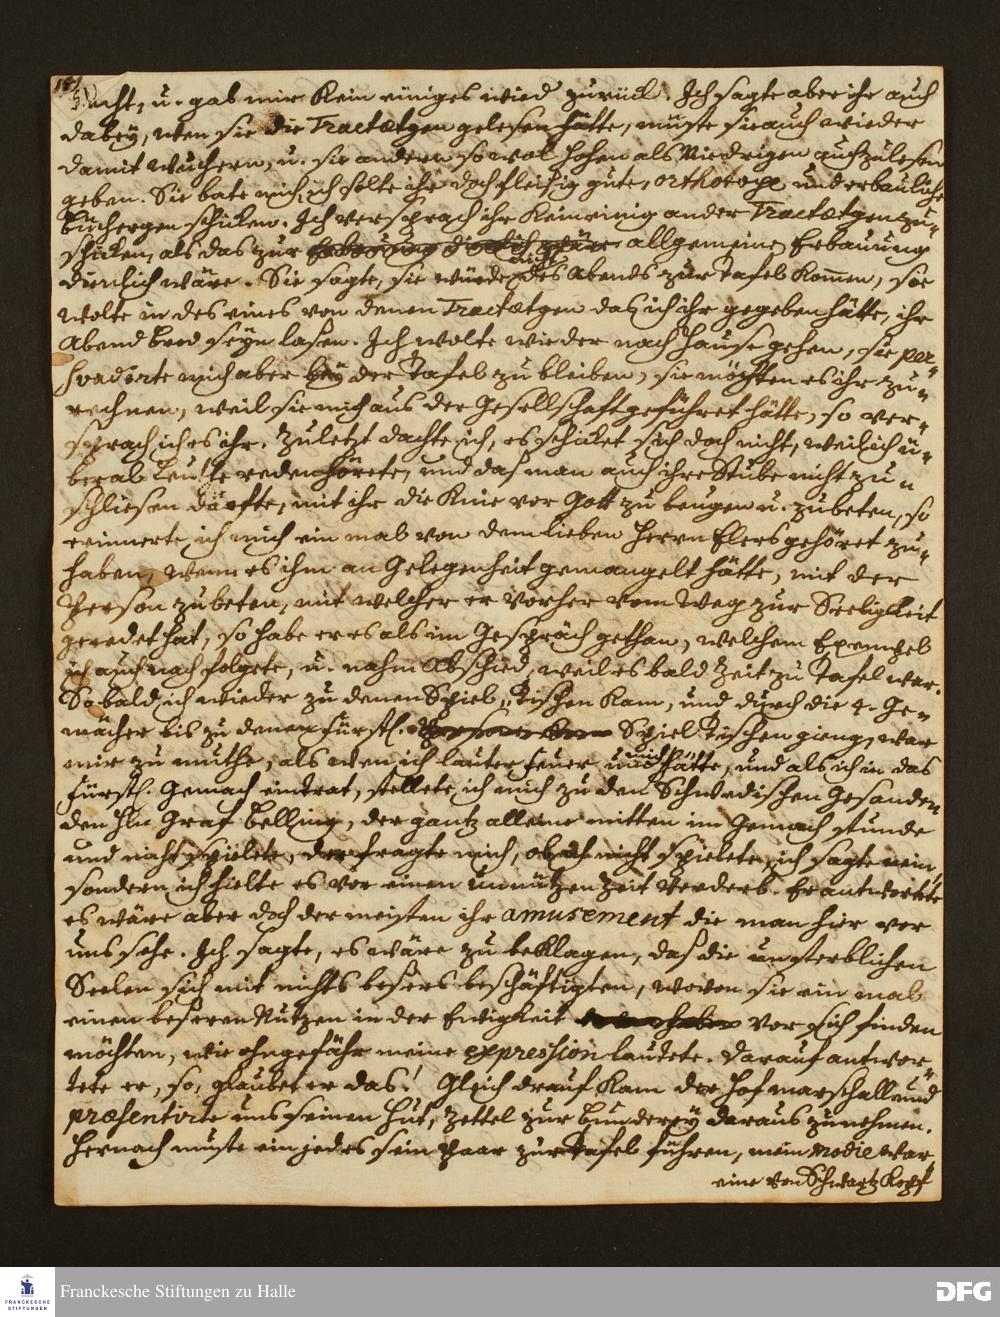 nicht, u. gab mir kein einiges wied zurück. Ich sagte aber ihr auch
dabey, wen sie die Tractætgen gelesen hätte, müste sie auch wieder
damit wuchern, u. sie andern so wol hohen als Niedrigen auch zulesen
geben. Sie bate mich, ich solte ihr doch fleißig gute, orthodoxe und erbauliche
büchergen schicken. Ich versprach ihr kein einig ander Tractætgen zu-
schicken, als das zur allgemeinen Erbauung
dienlich wäre. Sie sagte, sie würde nicht des Abends zur Tafel kommen, sie
wolte in des eines von denen Tractætgen das ich ihr gegeben hätte, ihr
Abend brod seyn lasen. Ich wolte wieder nach Hause gehen, sie per
svadirte mich aber bey der Tafel zu bleiben, sie möchten es ihr zu-
rechnen, weil sie mich aus der Gesellschaft geführet hätte, so ver-
sprach ich es ihr. Zuletzt dachte ich, es schicket sich doch nicht, weil ich ü-
beral Leuthe reden hörete, und das man auch ihre Stube nicht zu-
schliesen dürffte, mit ihr die Knie vor Gott zu beugen u. zubeten, so
erinnerte ich mich ein mal von dem lieben Herrn Elers gehöret zu-
haben, wenn es ihm an Gelegenheit gemangelt hätte, mit der
Person zubeten, mit welcher er vorher vom Weg zur Seeligkeit
geredet hat, so habe er es als im Gespräch gethan, welchem Exempel
ich auch nach folgete, u. nahm Abschied, weil es bald Zeit zu Tafel war.
So bald ich wieder zu denen Spiel-Tischen kam, und durch die 4. Ge-
mächer bis zu denen fürstl. Spiel Tischen gieng, war
mir zu muthe, als wen ich lauter Feuer um mich hätte, und als ich in das
fürstl. Gemach eintrat, stellete ich mich zu den Schwedischen Gesanden
den Hln Graf Belling, der gantz alleine mitten im Gemach stunde
und nicht spielete, der fragte mich, ob ich nicht spielete, ich sagte nein,
sondern ich hielte es vor einen unnützen Zeit Verderb. Er antwortete
es wäre aber doch der meisten ihr amusement die man hier vor
uns sehe. Ich sagte, es wäre zu beklagen, das die unsterblichen
Seelen sich mit nichts besers beschäftigten, wovon sie ein mal
einen beseren Nutzen in der Ewigkeit vor sich finden
möchten, wie ohngefähr meine expression lautete. Darauf antwor-
tete er, so, glaubet er das! Gleich drauf kam der Hof marschall und
præsentirte uns seinen Hut, Zettel zur bunderey daraus zunehmen.
Hernach muste ein jedes sein Paar zur Tafel führen, mein modie war
eine von Schwartz Kopf
Franckesche Stiftungen zu Halle
FRANCKESCHE
STIFTUNGEN
DFG